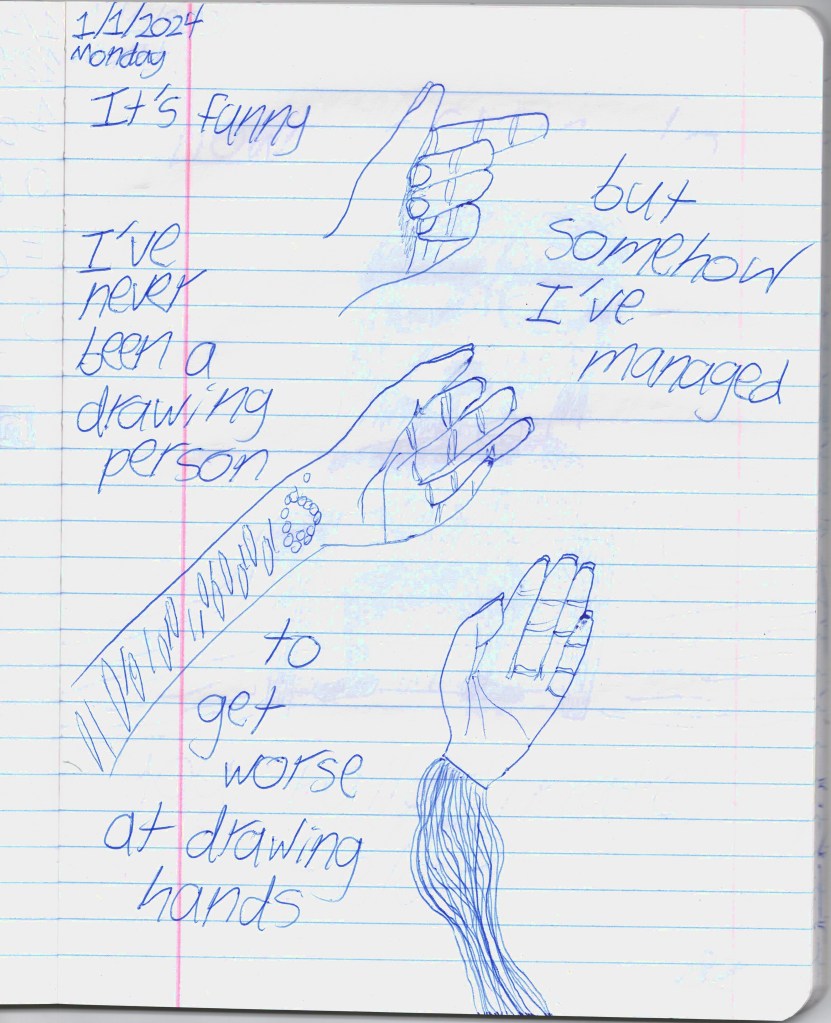 1/1/2024
Monday
It's funny
I've
never
been a
drawing
person
but
somehow
I've
managed
to
get
worse
at drawing
hands